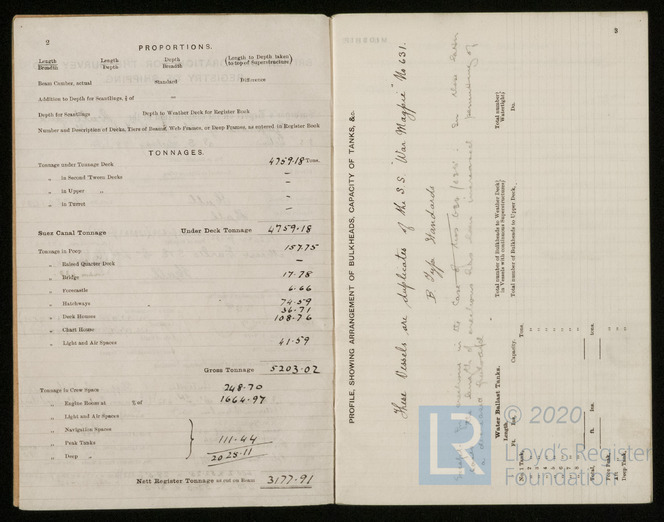 2
PROPORTIONS.
Length Length Depth (Length to Depth taken
Breadth Depth Breadth to top of Superstructure)
Beam Camber, actual Standard Difference
Addition to Depth for Scantlings, ⅓ of —
Depth for Scantlings Depth to Weather Deck for Register Book
Number and Description of Decks, Tiers of Beams, Web Frames, or Deep Frames, as entered in Register Book
TONNAGES.
Tonnage under Tonnage Deck 4759.18 Tons.
„ in Second 'Tween Decks —
„ in Upper „ —
„ in Turret —
Suez Canal Tonnage Under Deck Tonnage 4759.18
Tonnage in Poop 157.75
„ Raised Quarter Deck —
„ Bridge 17.78
„ Forecastle 6.66
„ Hatchways 74.59
„ Deck Houses 36.71
108.76
„ Chart House
„ Light and Air Spaces 41.59
Gross Tonnage 5203.02
Tonnage in Crew Space 248.70
„ Engine Room at % of 1664.97
„ Light and Air Spaces
„ Navigation Spaces
„ Peak Tanks 111.44
„ Deep „ 2025.11
Nett Register Tonnage as cut on Beam 3177.91
3
PROFILE, SHOWING ARRANGEMENT OF BULKHEADS, CAPACITY OF TANKS, &c.
These Vessels are duplicates of the S.S. "War Magpie" No 631.
B Type Standards
in the case of
Total number of Bulkheads to Weather Deck
in Vessels with continuous Superstructures
Total number of Bulkheads to Upper Deck,
Total number
Watertight
Do.
Water Ballast Tanks.
Length, Capacity.
Ft. Ins. Tons.
No. 1 Tank,
„ 2 „
„ 3 „
„ 4 „
„ 5 „
„ 6 „
„ 7 „
„ 8 „
Total, ft. ins. tons.
Fore Peak,
Aft „
Deep Tank,
LR
© 2020
Lloyd's Register
Foundation